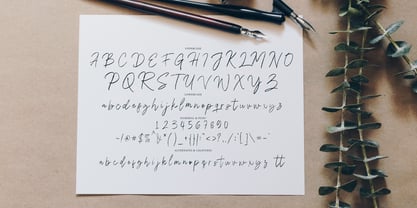 UPPERCASE
ABCDEFGHIJKLMNO
PQRSTUVWXYZ
LOWERCASE
abcdefghijklmnopqrstuvwxyz
NUMERAL & PUNC
1234567890
ALTERNATES & LIGATURES
abcdefghijklmnopqrstuvwxyz tt